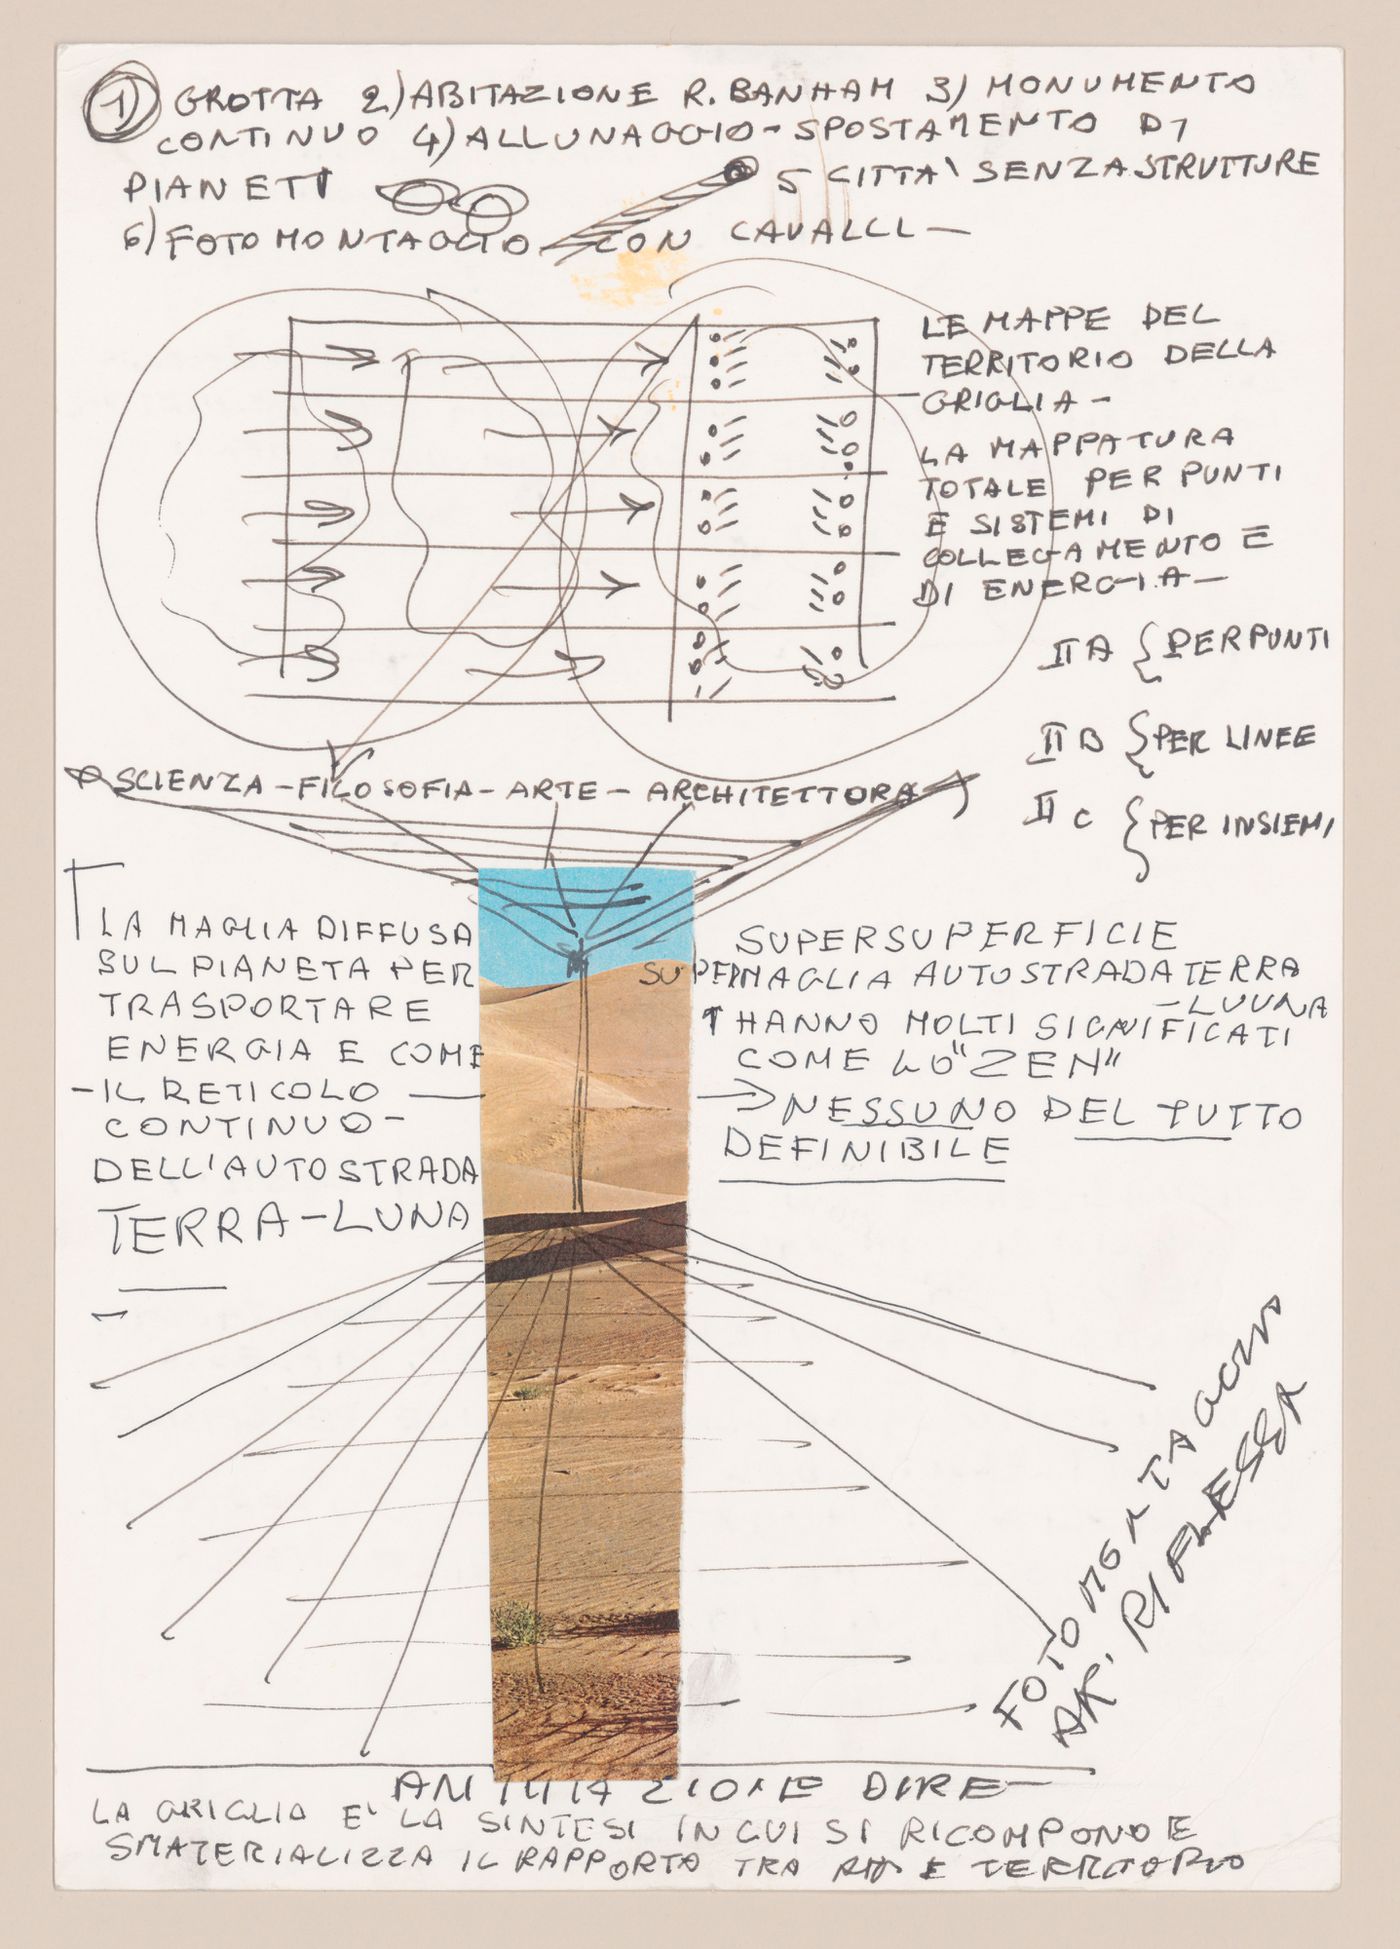 1) GROTTA 2) ABITAZIONE R. BANHAM 3) MONUMENTO
CONTINUO 4) ALLUNAGGIO - SPOSTAMENTO DI
PIANETI 5 CITTA' SENZA STRUTTURE
6) FOTOMONTAGGIO CON CAVALLI -
LE MAPPE DEL
TERRITORIO DELLA
GRIGLIA -
LA MAPPATURA
TOTALE PER PUNTI
E SISTEMI DI
COLLEGAMENTO E
DI ENERGIA -
II A { PER PUNTI
II B { PER LINEE
II C { PER INSIEMI
SCIENZA - FILOSOFIA - ARTE - ARCHITETTORA
LA MAGLIA DIFFUSA
SUL PIANETA PER
TRASPORTARE
ENERGIA E COME
- IL RETICOLO
CONTINUO -
DELL'AUTOSTRADA
TERRA - LUNA
SUPERSUPERFICIE
SUPERMAGLIA AUTOSTRADA TERRA
- LUUNA
HANNO MOLTI SIGNIFICATI
COME LO "ZEN"
NESSUNO DEL TUTTO
DEFINIBILE
FOTOMONTAGGIO
AR. RIFLESSA
DIRE
LA GRIGLIA E' LA SINTESI IN CUI SI RICOMPONO E
SMATERIALIZZA IL RAPPORTO TRA E TERRITORIO